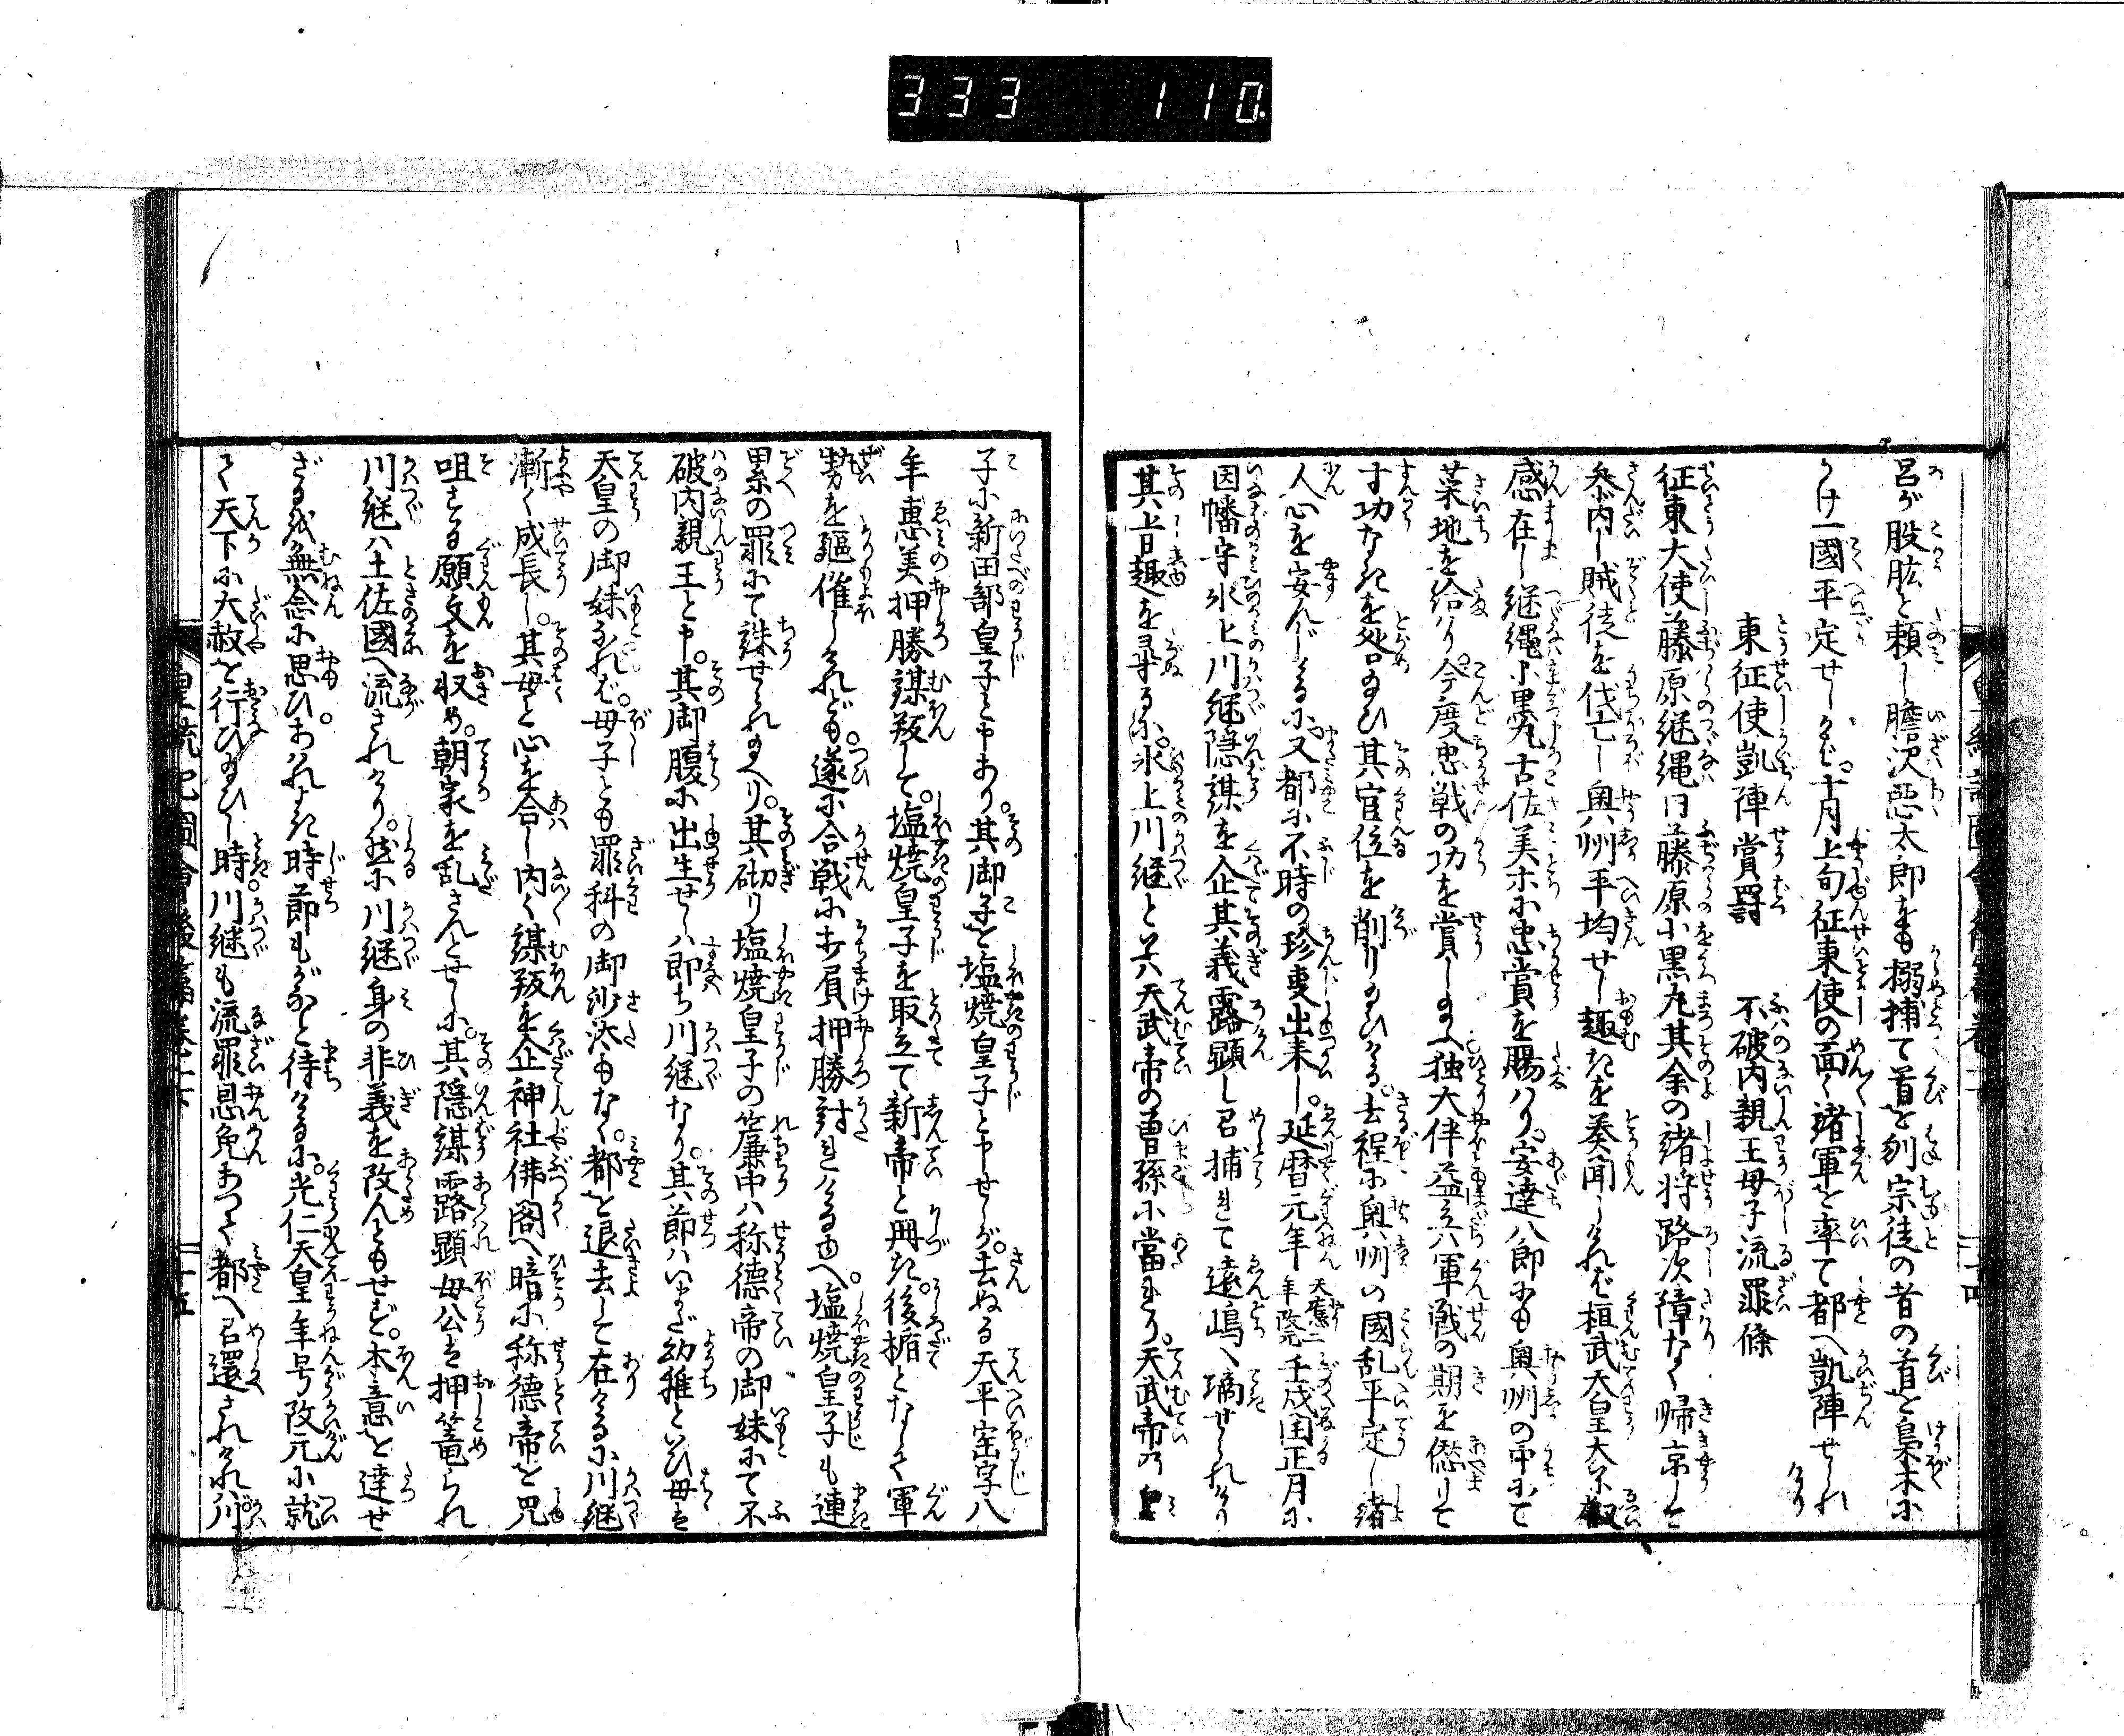 333 110
呂が股肱と頼し膽沢悪太郎をも搦捕て首を刎宗徒の者の首を梟木に
かけ一國平定せしかば十月上旬征東使の面々諸軍を率て都へ凱陣せられ
けり
東征使凱陣賞罸 不破内親王母子流罪條
征東大使藤原継縄同藤原小黒丸其余の諸将路次障なく帰京して
参内し賊徒を伐亡し奥州平均せし趣きを奏聞しければ桓武天皇大に叡
感在し継縄小黒丸古佐美ホに忠賞を賜はり安達八郎にも奥州の中にて
菜地を給はり今度忠戦の功を賞し給へ独大伴益立ハ軍戦の期を愆りて
寸功なきを咎め給ひ其官位を削り給ひける去程に奥州の國乱平定し諸
人心を安んじける小又都に不時の珍叓出来し延暦元年天應二年改元壬戌閏正月に
因幡守氷上川継隠謀を企其義露顕し召捕れて遠嶋へ謫せられけり
其上旨趣を尋るに氷上川継と云ハ天武帝の曽孫に當れり天武帝の皇
子に新田部皇子と申あり其御子を塩焼皇子と申せしが去ぬる天平宝字八
年恵美押勝謀叛して塩焼皇子を取立て新帝と冊き後楯となして軍
勢を駈催しけれども遂に合戦に打負押勝討れける由へ塩焼皇子も連
累の罪にて誅せられ給へり其砌り塩焼皇子の簾中ハ称徳帝の御妹にて不
破内親王と申其御腹に出生せしハ即ち川継なり其節ハいまだ幼稚といひ母は
天皇の御妹なれば母子とも罪科の御沙汰もなく都を退去して在けるに川継
漸く成長し其母と心を合し内々謀叛を企神社佛閣へ暗に称徳帝を咒
咀さる願文を収め朝家を乱さんとせしに其隠謀露顕母公は押篭られ
川継ハ土佐國へ流されけり然に川継身の非義を改んともせず本意を達せ
ざるを無念に思ひあはれよき時節もがなと待けるに光仁天皇年号改元に就
て天下に大赦を行ひ給ひし時川継も流罪恩免あつて都へ召還されけれバ川
皇統記圖會後篇卷之下 二十五